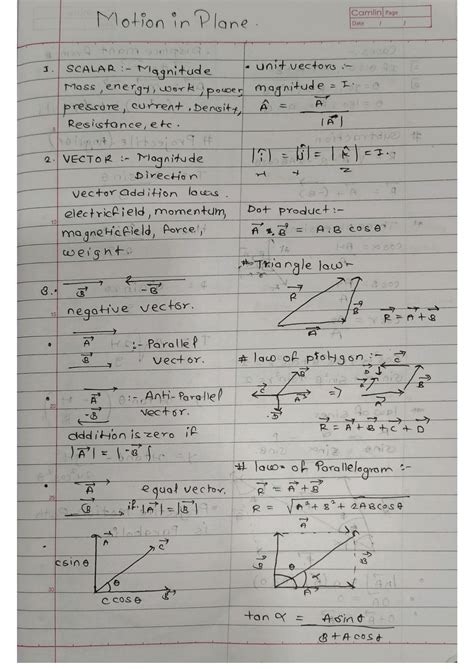 Motion in Plane.
Camlin Page
Date / /
1. SCALAR :- Magnitude
Mass, energy, work, power
pressure, current, Density,
Resistance, etc.
2. VECTOR :- Magnitude
Direction
vector addition laws.
electric field, momentum,
magnetic field, force,
weight.
3. B⃗ -B⃗
negative vector.
• A⃗ :- Parallel
B⃗ vector.
• A⃗ :- Anti-Parallel
-B⃗ vector.
addition is zero if
|A⃗| = |-B⃗|
• A⃗ equal vector.
B⃗ if |A⃗| = |B⃗|
A C⃗
C sin θ
θ
C cos θ B⃗
• unit vectors :-
magnitude = 1.
Â = A⃗
|A⃗|
|î| = |ĵ| = |k̂| = 1.
x y z
Dot product :-
A⃗ . B⃗ = A.B cos θ
# Triangle law :-
R⃗ B⃗
A⃗ R⃗ = A⃗ + B⃗
# law of ptolygon :-
C⃗ B⃗ A⃗ D⃗ => D⃗ C⃗ B⃗ A⃗ R⃗
R⃗ = A⃗ + B⃗ + C⃗ + D⃗
# law of Parallelogram :-
R⃗ = A⃗ + B⃗
R = √A² + B² + 2AB cos θ
A⃗
B⃗ θ α B⃗
A⃗
tan α = A sin θ
B + A cos θ